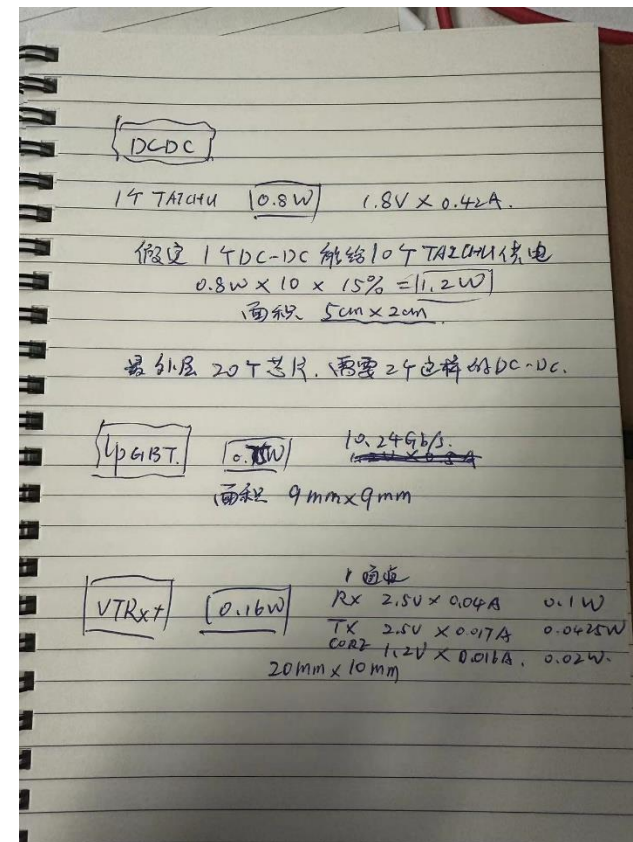 DCDC
1个 TAICHU 0.8W 1.8V × 0.42A.
假定 1个DC-DC 能给10个TAICHU供电
0.8W × 10 × 15% = 1.2W
面积 5cm × 2cm
最外层 20个芯片. 需要2个这样的DC-DC.
lpGBT. 0.75W 10.24Gb/s.
面积 9mm×9mm
1通道
VTRx+ 0.16W RX 2.5V × 0.04A 0.1W
TX 2.5V × 0.017A 0.0425W
CORE 1.2V × 0.016A. 0.02W.
20mm × 10mm